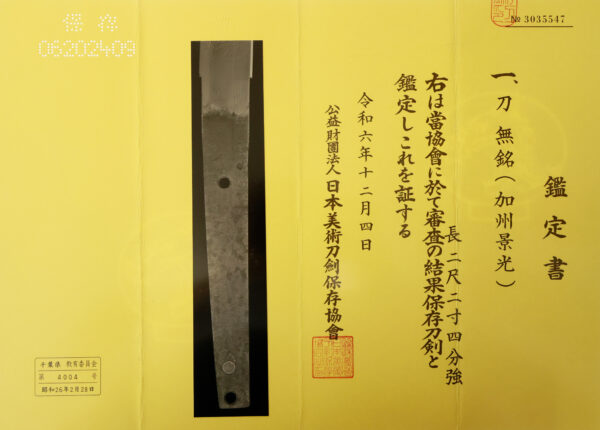 № 3035547
鑑定書
一、刀 無銘(加州景光)
長二尺二寸四分強
右は當協會に於て審査の結果保存刀剣と
鑑定しこれを証する
令和六年十二月四日
公益財團法人 日本美術刀劍保存協會
保存
06202409
千葉県 教育委員会
第 4004 号
昭和26年2月28日